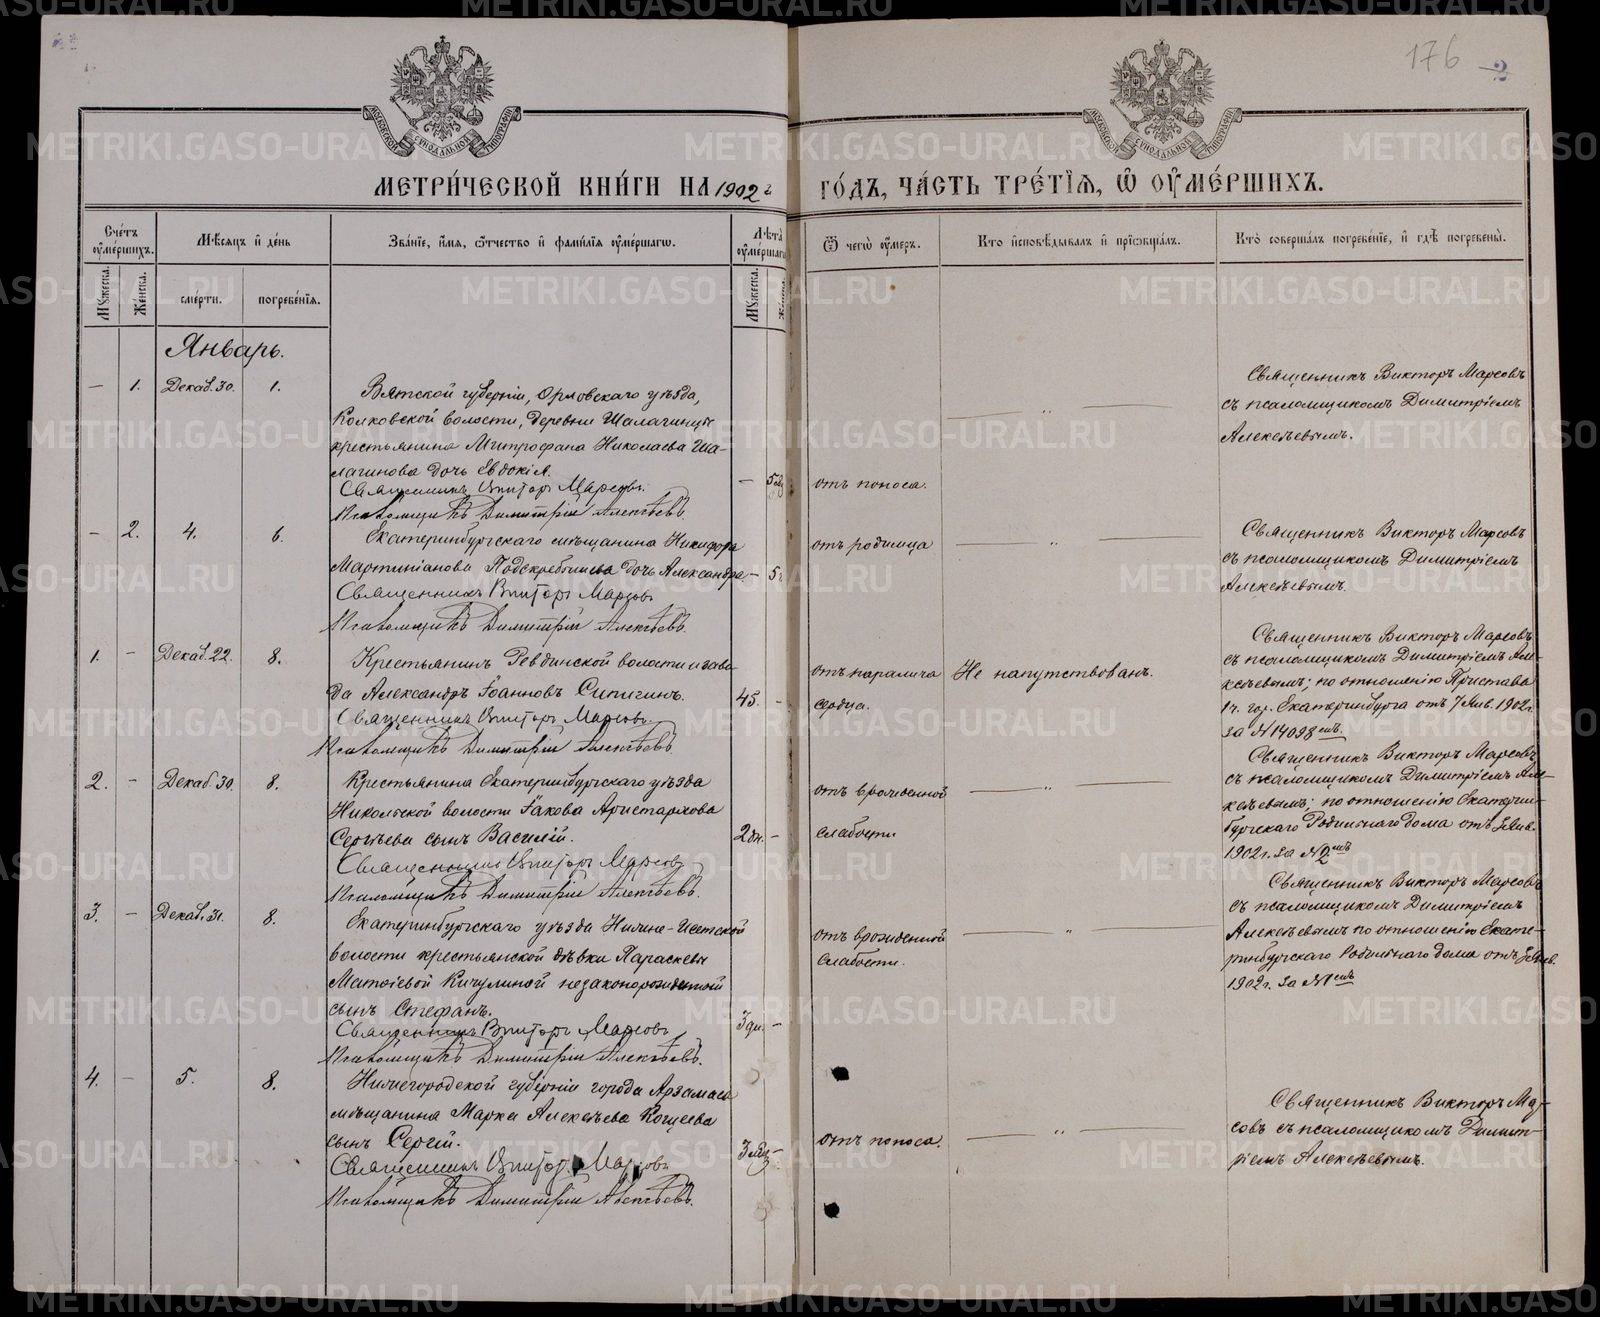 176 2
МЕТРИ́ЧЕСКОЙ КНИ́ГИ НА 1902 г
ГО́ДЪ, ЧА́СТЬ ТРЕ́ТІѦ, Ѡ ОУМЕ́РШИХЪ.
Сче́тъ оумершихъ.
Мѣсѧцъ и де́нь
Зва́ніе, и́мѧ, ѻтчество и фами́лїѧ оуме́ршагѡ.
Лѣта оумершагѡ
Ѿ чегѡ̀ оу́меръ.
Кто̀ и҆сповѣ́дывалъ и҆ прїѡбща́лъ.
Кто̀ соверша́лъ погребе́нїе, и҆ гдѣ̀ погребены̀.
Мꙋжеска.
Же́нска.
сме́рти.
погребе́нїѧ.
Мꙋжеска.
Январь.
— 1. Декаб. 30. 1.
Вятской губерніи, Орловскаго уѣзда,
волости, деревни
крестьянина Митрофана Николаева Ша-
лагинова дочь Евдокія.
Священникъ Викторъ Марсовъ.
Псаломщикъ Димитрій Алексѣевъ.
отъ поноса.
Священникъ Викторъ Марсовъ
съ псаломщикомъ Димитріемъ
Алексѣевымъ.
— 2. 4. 6.
Екатеринбургскаго мѣщанина Никифора
Мартиніанова дочь Александра
Священникъ Викторъ Марсовъ
Псаломщикъ Димитрій Алексѣевъ.
отъ родимца
Священникъ Викторъ Марсовъ
съ псаломщикомъ Димитріемъ
Алексѣевымъ.
1. — Декаб. 22. 8.
Крестьянинъ Ревдинской волости и заво
да Александръ Іоанновъ Сипигинъ.
Священникъ Викторъ Марсовъ.
Псаломщикъ Димитрій Алексѣевъ
45.
отъ паралича
сердца.
Не напутствованъ.
Священникъ Викторъ Марсовъ
съ псаломщикомъ Димитріемъ Але-
ксѣевымъ; по отношенію Пристава
1 ч. гор. Екатеринбурга отъ 7 Янв. 1902 г.
за № 14098 мъ.
2. — Декаб. 30. 8.
Крестьянина Екатеринбургскаго уѣзда
Никольской волости Іакова Аристархова
Сергѣева сынъ Василій.
Священникъ Викторъ Марсовъ
Псаломщикъ Димитрій Алексѣевъ.
2 дн. —
отъ врожденной
слабости
Священникъ Викторъ Марсовъ
съ псаломщикомъ Димитріемъ Але-
ксѣевымъ; по отношенію Екатерин-
бургскаго Родильнаго дома отъ Янв.
1902 г. за № 2 мъ
3. — Декаб. 31. 8.
Екатеринбургскаго уѣзда Нижне-Исетской
волости крестьянской дѣвки Параскевы
Матѳіевой Кичулиной незаконорожденный
сынъ Стефанъ.
Священникъ Викторъ Марсовъ
Псаломщикъ Димитрій Алексѣевъ.
3 дн. —
отъ врожденной
слабости.
Священникъ Викторъ Марсовъ
съ псаломщикомъ Димитріемъ
Алексѣевымъ по отношенію Екате-
ринбургскаго Родильнаго дома отъ Янв.
1902 г. за № 1 мъ
4. — 5. 8.
Нижегородской губерніи города Арзамаса
мѣщанина Марка Алексѣева Кощеева
сынъ Сергій.
Священникъ Викторъ Марсовъ
Псаломщикъ Димитрій Алексѣевъ.
3 мѣс. —
отъ поноса.
Священникъ Викторъ Мар-
совъ съ псаломщикомъ Димит-
ріемъ Алексѣевымъ.
METRIKI.GASO-URAL.RU